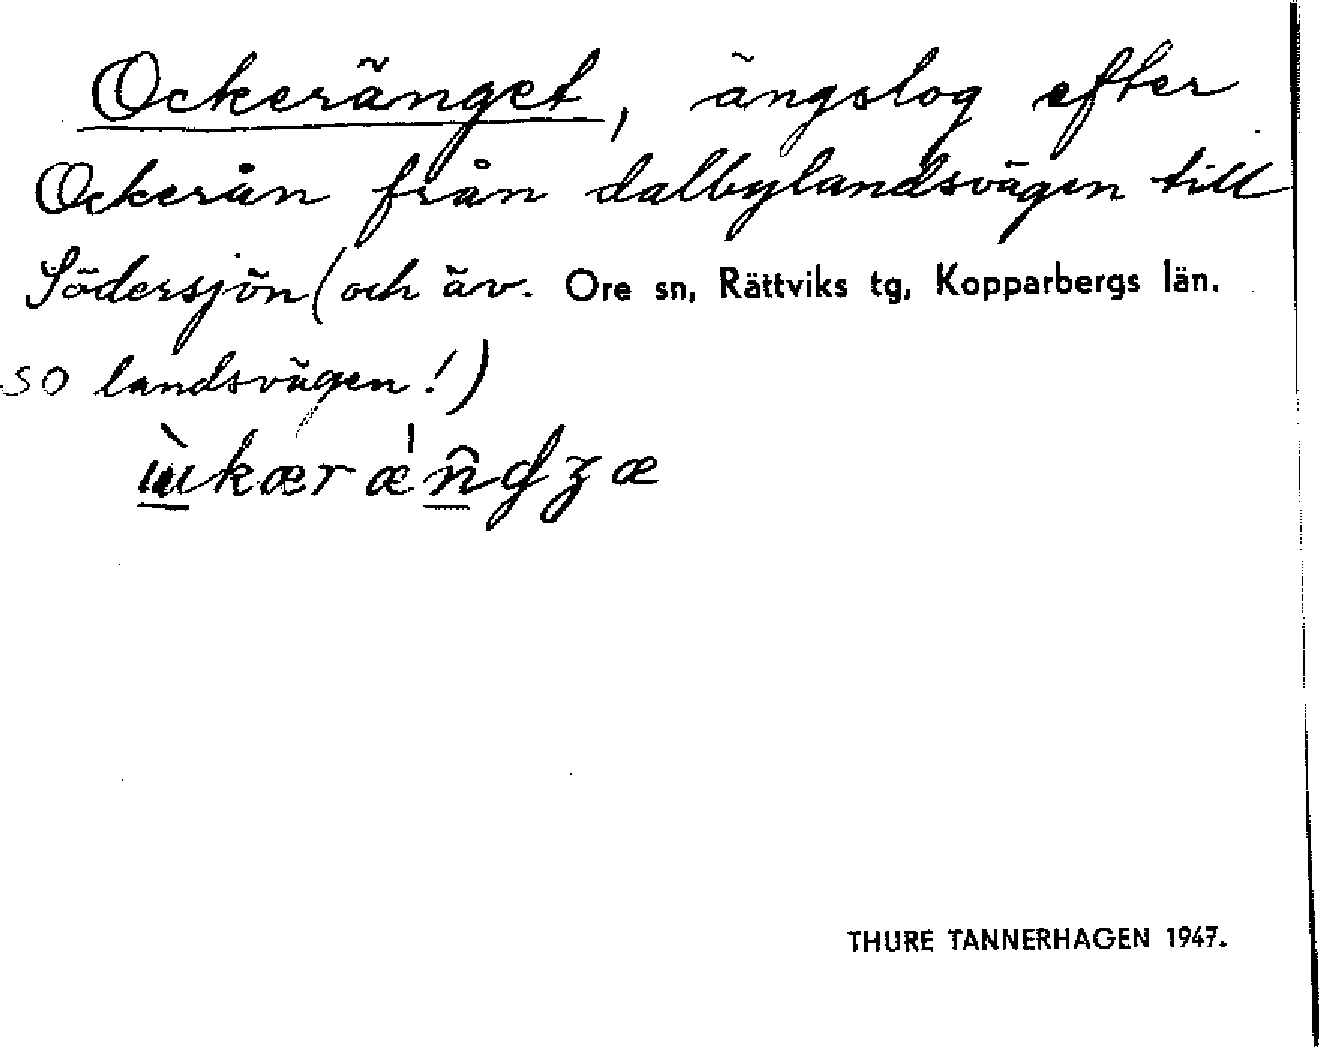 Ockeränget, ängslog efter
Ockerån från dalbylandsvägen till
Södersjön (och äv. Ore sn, Rättviks tg, Kopparbergs län.
SO landsvägen!)
THURE TANNERHAGEN 1947.